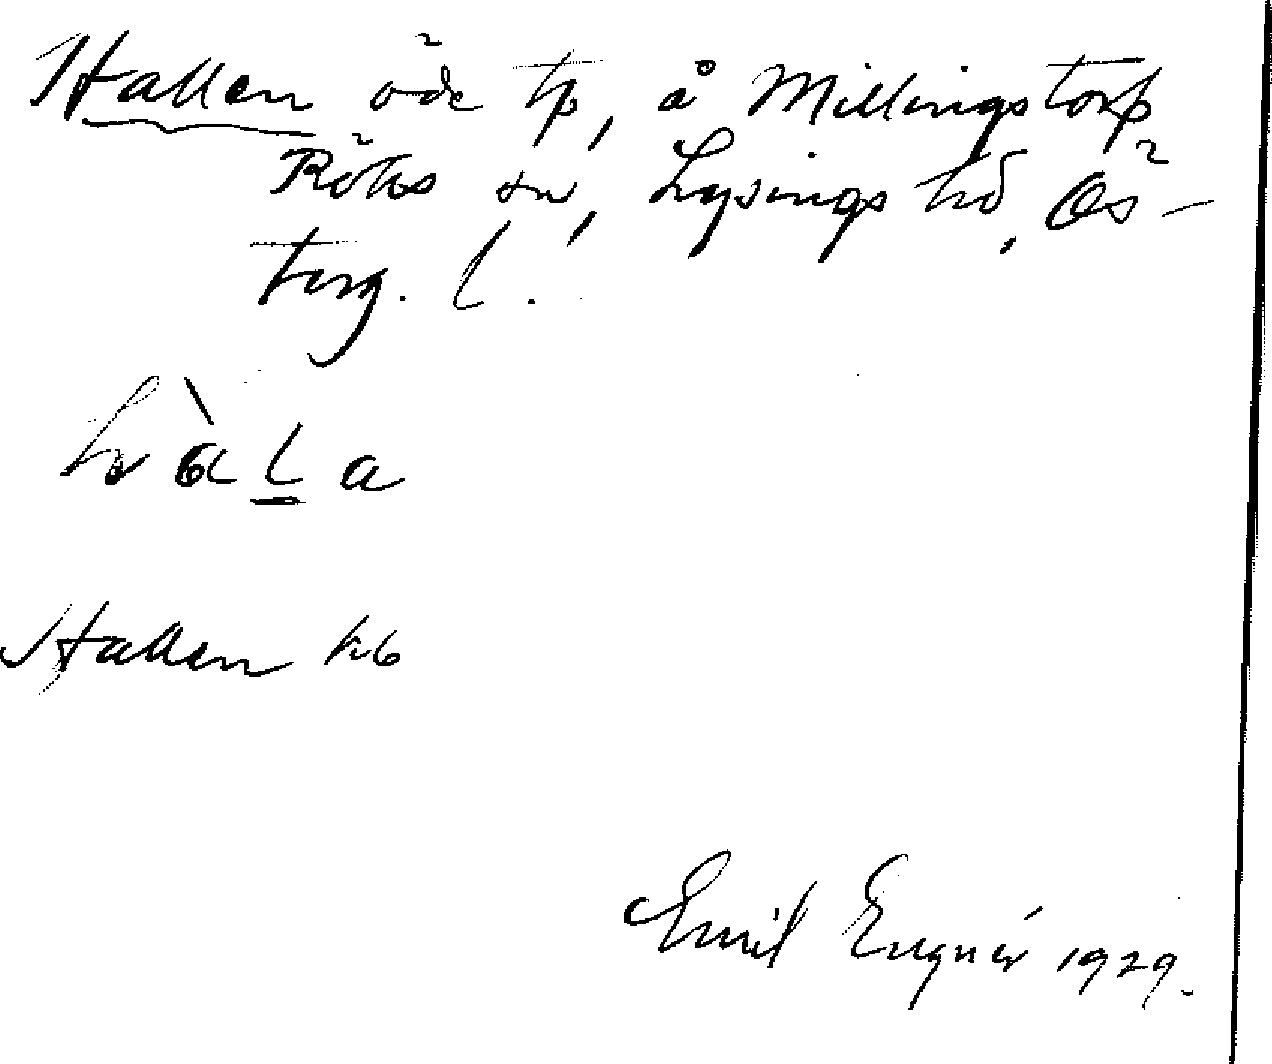 Hallen öde tp, å Millingstorp
Röks sn, Lysings hd, Ös-
terg. l.
hàla
Hallen kb
Emil Engnér 1929.